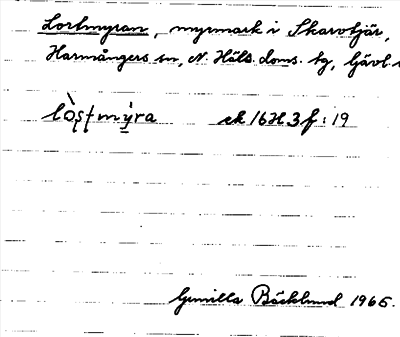 Lortmyran, myrmark i Skarvtjär,
Harmångers sn, N. Häls. doms. tg, Gävl.
lo̖ṣṭmy̱ra ek 16H3f:19
Gunilla Bäcklund 1965.